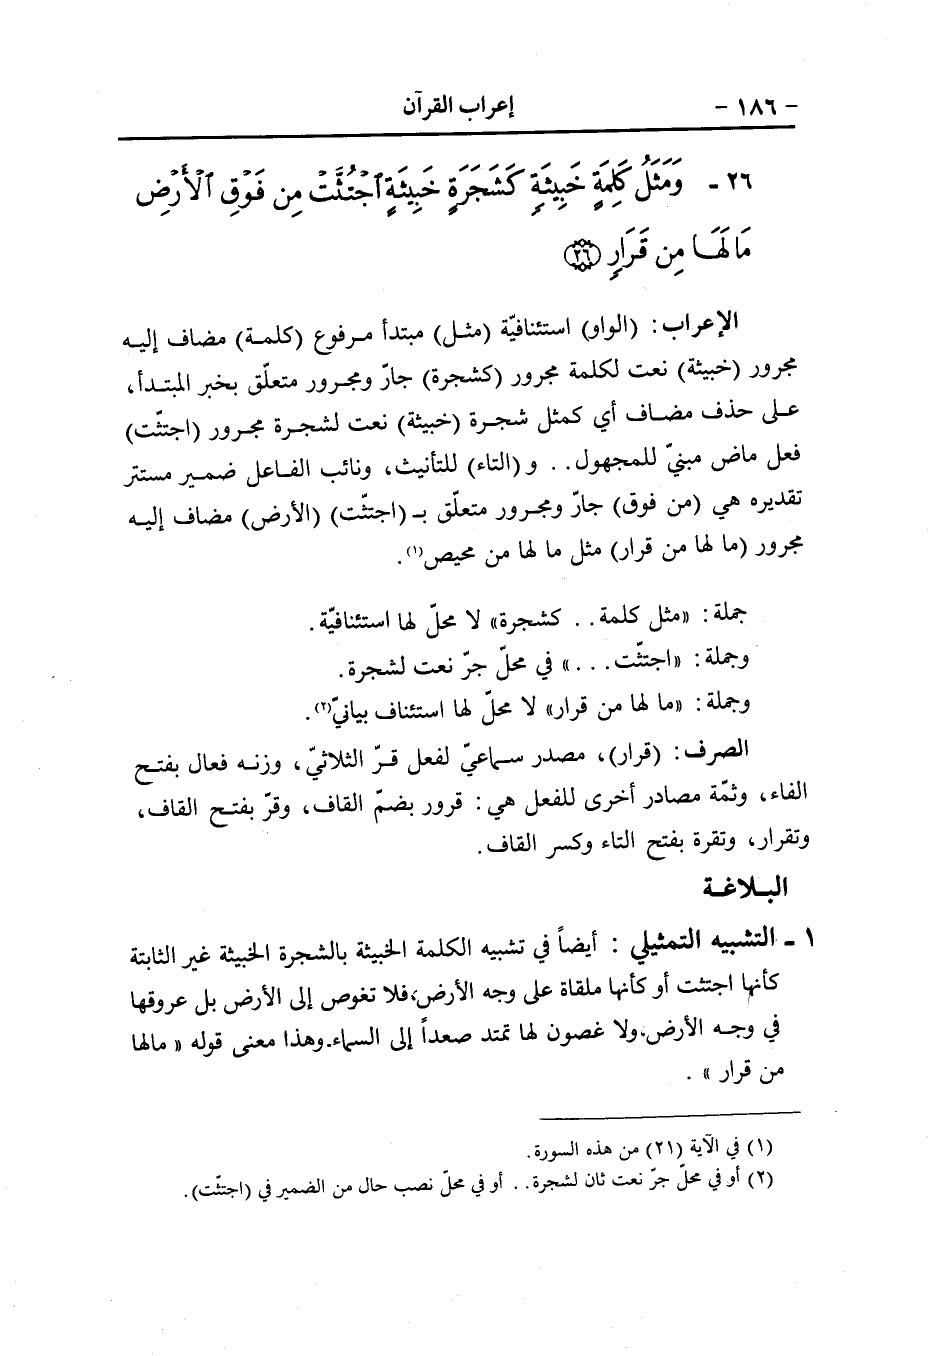 - ١٨٦ - إعراب القرآن
٢٦ - وَمَثَلُ كَلِمَةٍ خَبِيثَةٍ كَشَجَرَةٍ خَبِيثَةٍ ٱجْتُثَّتْ مِن فَوْقِ ٱلْأَرْضِ
مَا لَهَا مِن قَرَارٍ ٢٦
الإعراب: (الواو) استئنافيّة (مثل) مبتدأ مرفوع (كلمة) مضاف إليه
مجرور (خبيثة) نعت لكلمة مجرور (كشجرة) جارّ ومجرور متعلّق بخبر المبتدأ،
على حذف مضاف أي كمثل شجرة (خبيثة) نعت لشجرة مجرور (اجتثّت)
فعل ماض مبنيّ للمجهول.. و (التاء) للتأنيث، ونائب الفاعل ضمير مستتر
تقديره هي (من فوق) جارّ ومجرور متعلّق بـ (اجتثّت) (الأرض) مضاف إليه
مجرور (ما لها من قرار) مثل ما لها من محيص(١).
جملة: «مثل كلمة.. كشجرة» لا محلّ لها استئنافيّة.
وجملة: «اجتثّت...» في محلّ جرّ نعت لشجرة.
وجملة: «ما لها من قرار» لا محلّ لها استئناف بيانيّ(٢).
الصرف: (قرار)، مصدر سماعيّ لفعل قرّ الثلاثيّ، وزنه فعال بفتح
الفاء، وثمّة مصادر أخرى للفعل هي: قرور بضمّ القاف، وقرّ بفتح القاف،
وتقرار، وتقرة بفتح التاء وكسر القاف.
البلاغة
١ - التشبيه التمثيلي : أيضاً في تشبيه الكلمة الخبيثة بالشجرة الخبيثة غير الثابتة
كأنها اجتثت أو كأنها ملقاة على وجه الأرض،فلا تغوص إلى الأرض بل عروقها
في وجه الأرض،ولا غصون لها تمتد صعداً إلى السماء.وهذا معنى قوله « مالها
من قرار » .
(١) في الآية (٢١) من هذه السورة.
(٢) أو في محلّ جرّ نعت ثان لشجرة.. أو في محلّ نصب حال من الضمير في (اجتثّت).